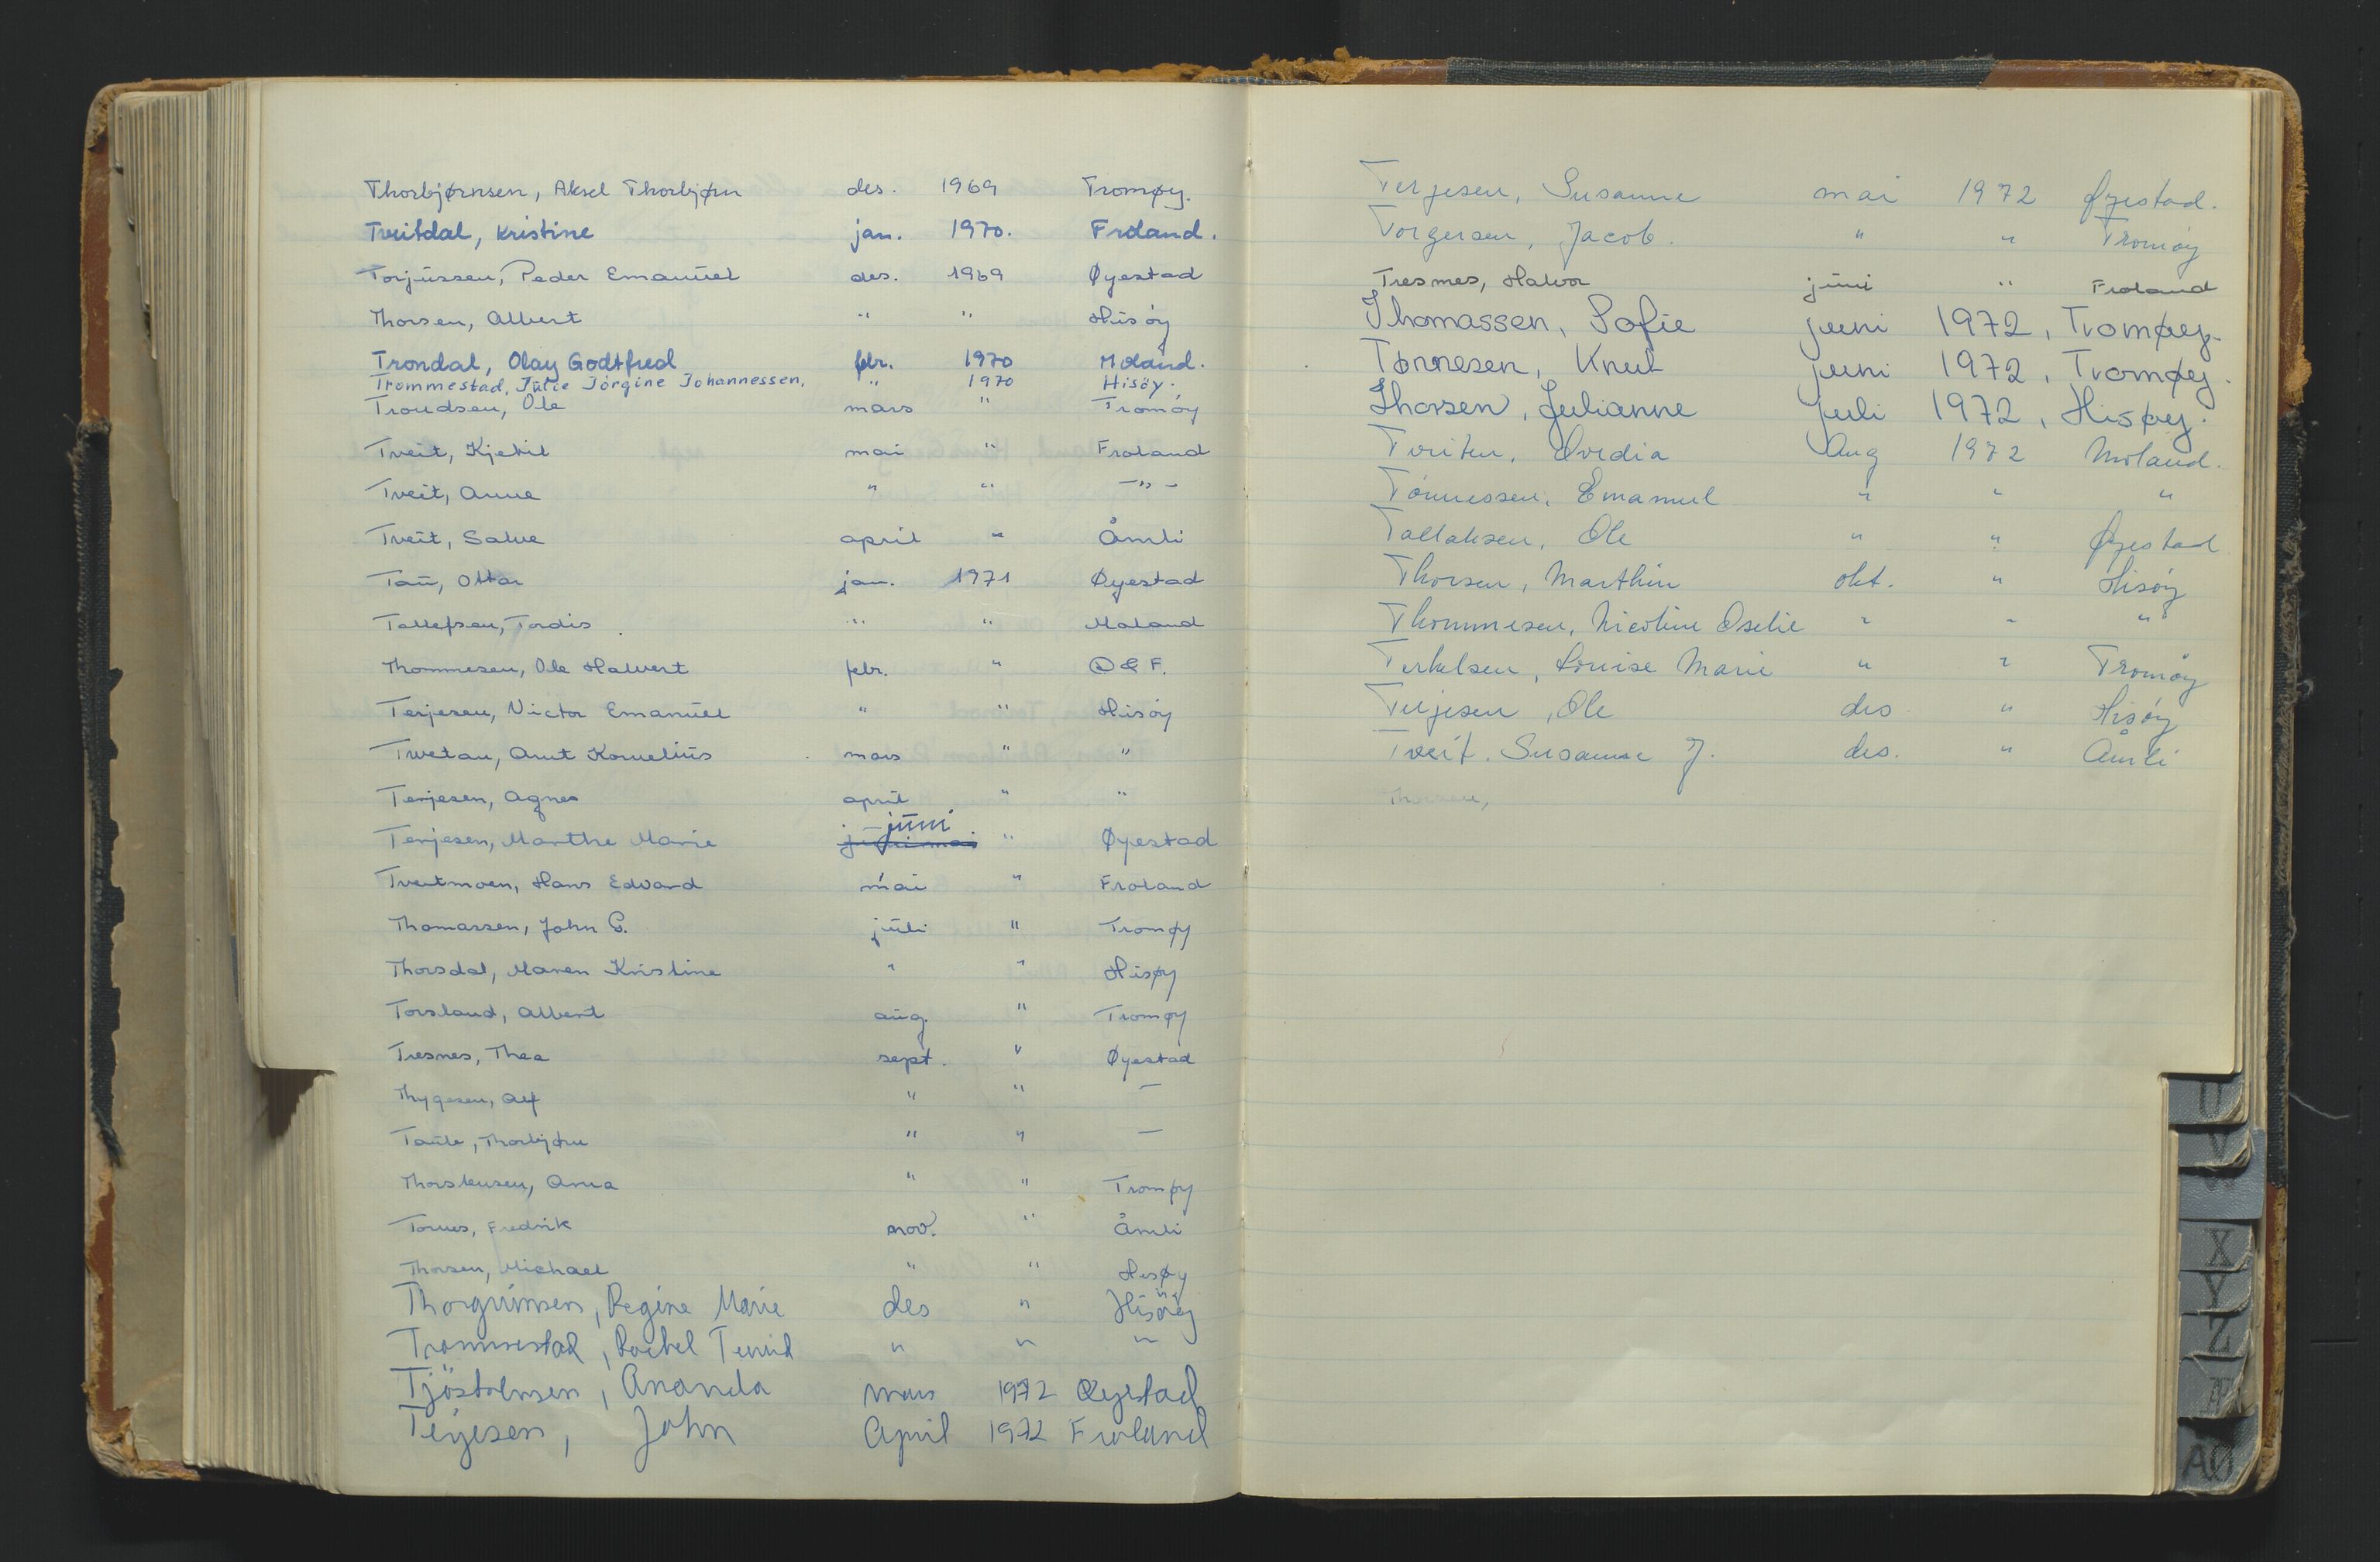 Thorbjørnsen, Aksel Thorbjørn des. 1969 Tromøy.
Tveitdal, Kristine jan. 1970. Froland.
Torjussen, Peder Emanuel des. 1969 Øyestad
Thorsen, Albert " " Hisøy
Trondal, Olav Godtfred febr. 1970 Moland.
Trommestad, Julie Jörgine Johannessen, " 1970 Hisöy.
Trondsen, Ole mars " Tromöy
Tveit, Kjetil mai " Froland
Tveit, Anne " " -"-
Tveit, Salve april " Åmli
Tau, Ottar jan. 1971 Øyestad
Tellefsen, Tordis " " Moland
Thommesen, Ole Halvert febr. " Ø & F.
Terjesen, Victor Emanuel " " Hisöy
Tvetan, Arnt Kornelius mars " "
Terjesen, Agnes april " "
juni
Terjesen, Marthe Marie " Øyestad
Tveitmoen, Hans Edvard mai " Froland
Thomassen, John C. juli " Tromøy
Thorsdal, Maren Kristine " " Hisøy
Torsland, Albert aug. " Tromøy
Tresnes, Thea sept. " Øyestad
Thygesen, Alf " " —
Taule, Thorbjørn " " —
Thorstensen, Anna " " Tromøy
Tornes, Fredrik nov. " Åmli
Thorsen, Michael " " Hisøy
Thorgrimsen, Regine Marie des " Hisöy
Trommestad, Rachel " " "
Tjöstolvsen, Ananda mars 1972 Øyestad
Terjesen, John April 1972 Froland
Terjesen, Susanne mai 1972 Øyestad.
Torgersen, Jacob. " " Tromöy
Tresmes, Halvor juni " Froland
Thomassen, Sofie juni 1972, Tromøy.
Tønnesen, Knut juni 1972, Tromøy.
Thorsen, Julianne juli 1972, Hisøy.
Tveiten, Ovedia Aug 1972 Moland.
Tönnessen, Emanuel " " "
Tallaksen, Ole " " Øyestad
Thorsen, Marthin okt. " Hisöy
Thommesen, Nicoline Oselie " " "
Terkelsen, Louise Marie " " Tromöy
Terjesen, Ole des " Hisöy
Tveit. Susanne J. des. " Åmli
Thorsen,
U
V
X
Y
Z
Æ
AØ